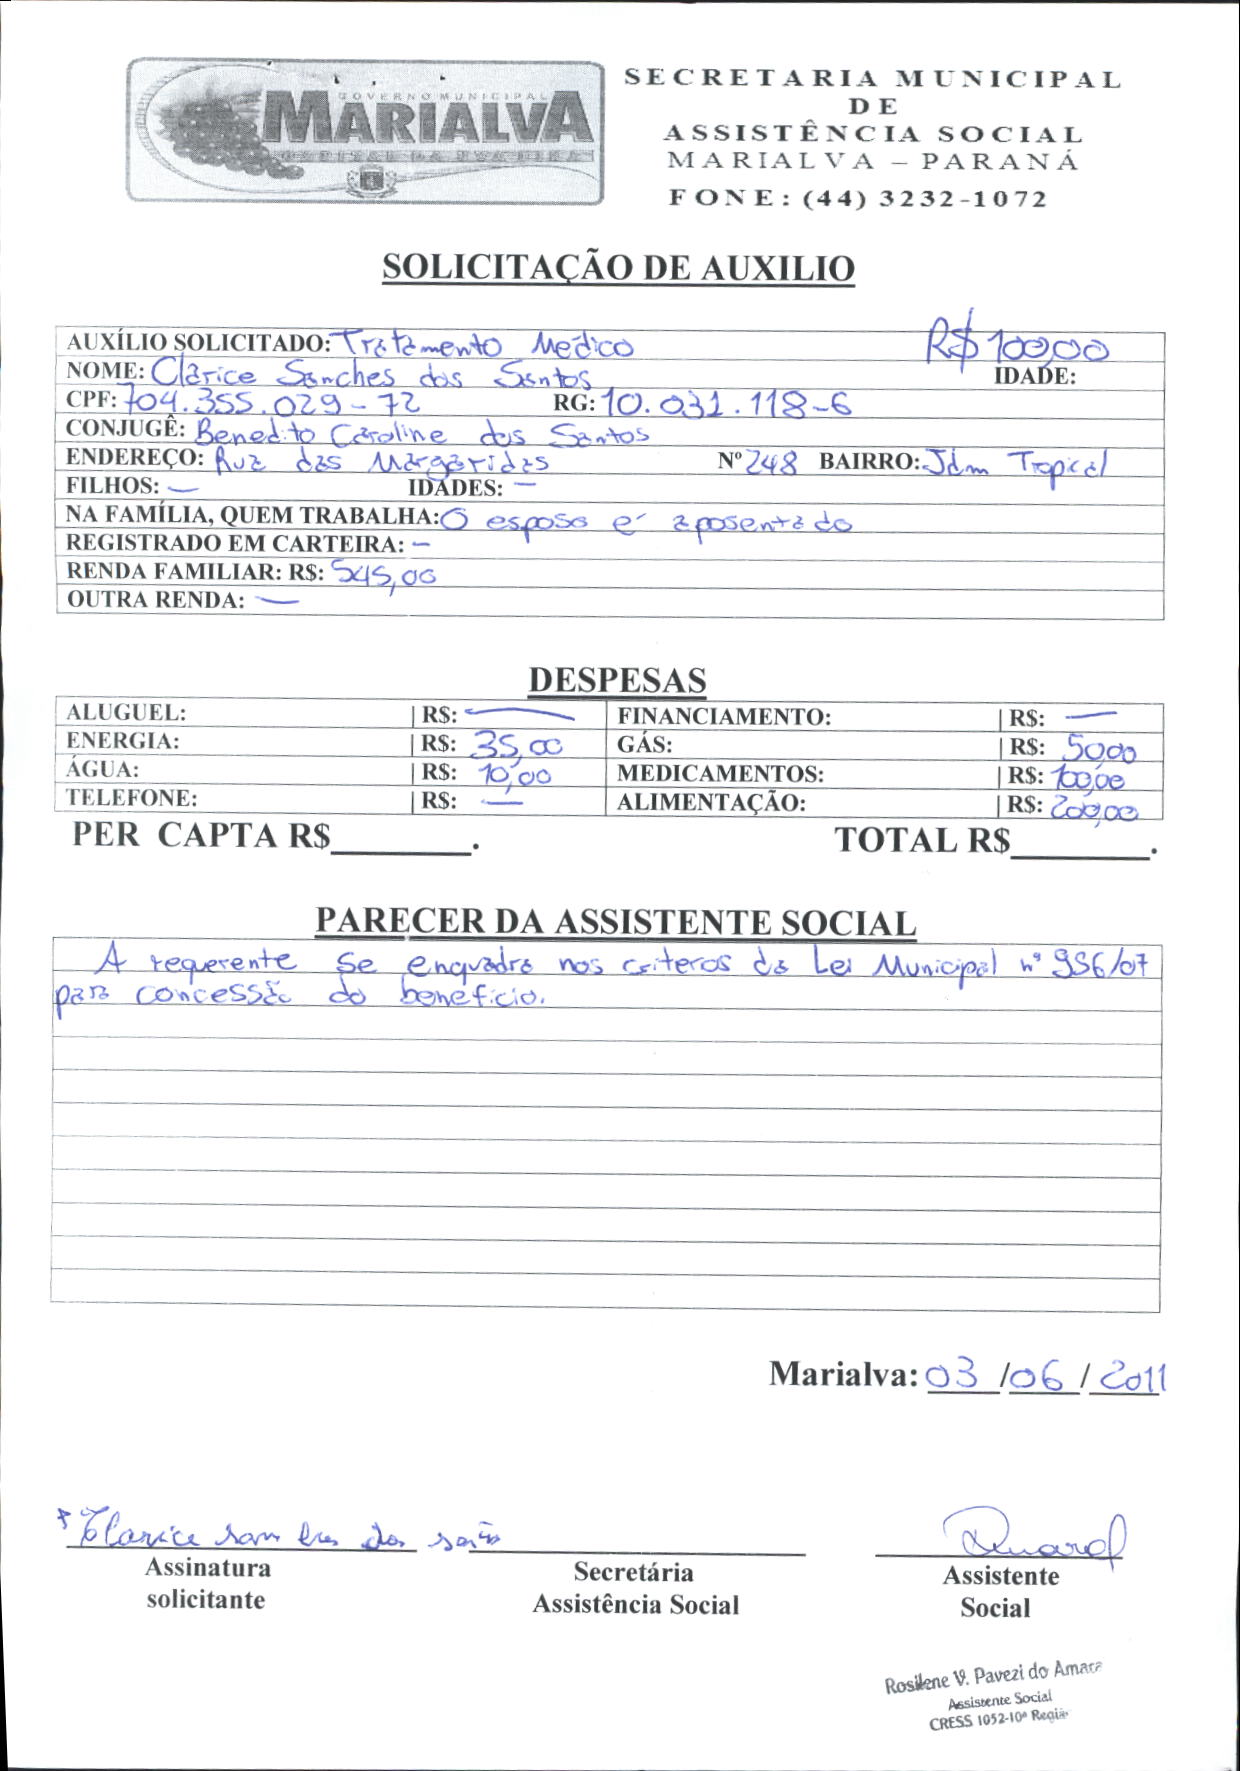 GOVERNO MUNICIPAL
MARIALVA
CAPITAL DA UVA FINA
SECRETARIA MUNICIPAL
DE
ASSISTÊNCIA SOCIAL
MARIALVA – PARANÁ
FONE: (44) 3232-1072
SOLICITAÇÃO DE AUXILIO
AUXÍLIO SOLICITADO: Tratamento Medico R$ 100,00
NOME: Clarice Sanches dos Santos IDADE:
CPF: 704.355.029-72 RG: 10.031.118-6
CONJUGÊ: Benedito Caroline dos Santos
ENDEREÇO: Rua das Margaridas Nº 248 BAIRRO: Jdm Tropical
FILHOS: — IDADES: —
NA FAMÍLIA, QUEM TRABALHA: O esposo é aposentado
REGISTRADO EM CARTEIRA: –
RENDA FAMILIAR: R$: 545,00
OUTRA RENDA: —
DESPESAS
ALUGUEL: | R$: — FINANCIAMENTO: | R$: —
ENERGIA: | R$: 35,00 GÁS: | R$: 50,00
ÁGUA: | R$: 10,00 MEDICAMENTOS: | R$: 100,00
TELEFONE: | R$: — ALIMENTAÇÃO: | R$: 200,00
PER CAPTA R$_______. TOTAL R$_______.
PARECER DA ASSISTENTE SOCIAL
A requerente se enquadra nos criteros da Lei Municipal nº 986/07
para concessão do beneficio.
Marialva: 03 /06 / 2011
Clarice
Assinatura Secretária Assistente
solicitante Assistência Social Social
Rosilene V. Pavezi do Amara
Assistente Social
CRESS 1052-10ª Região